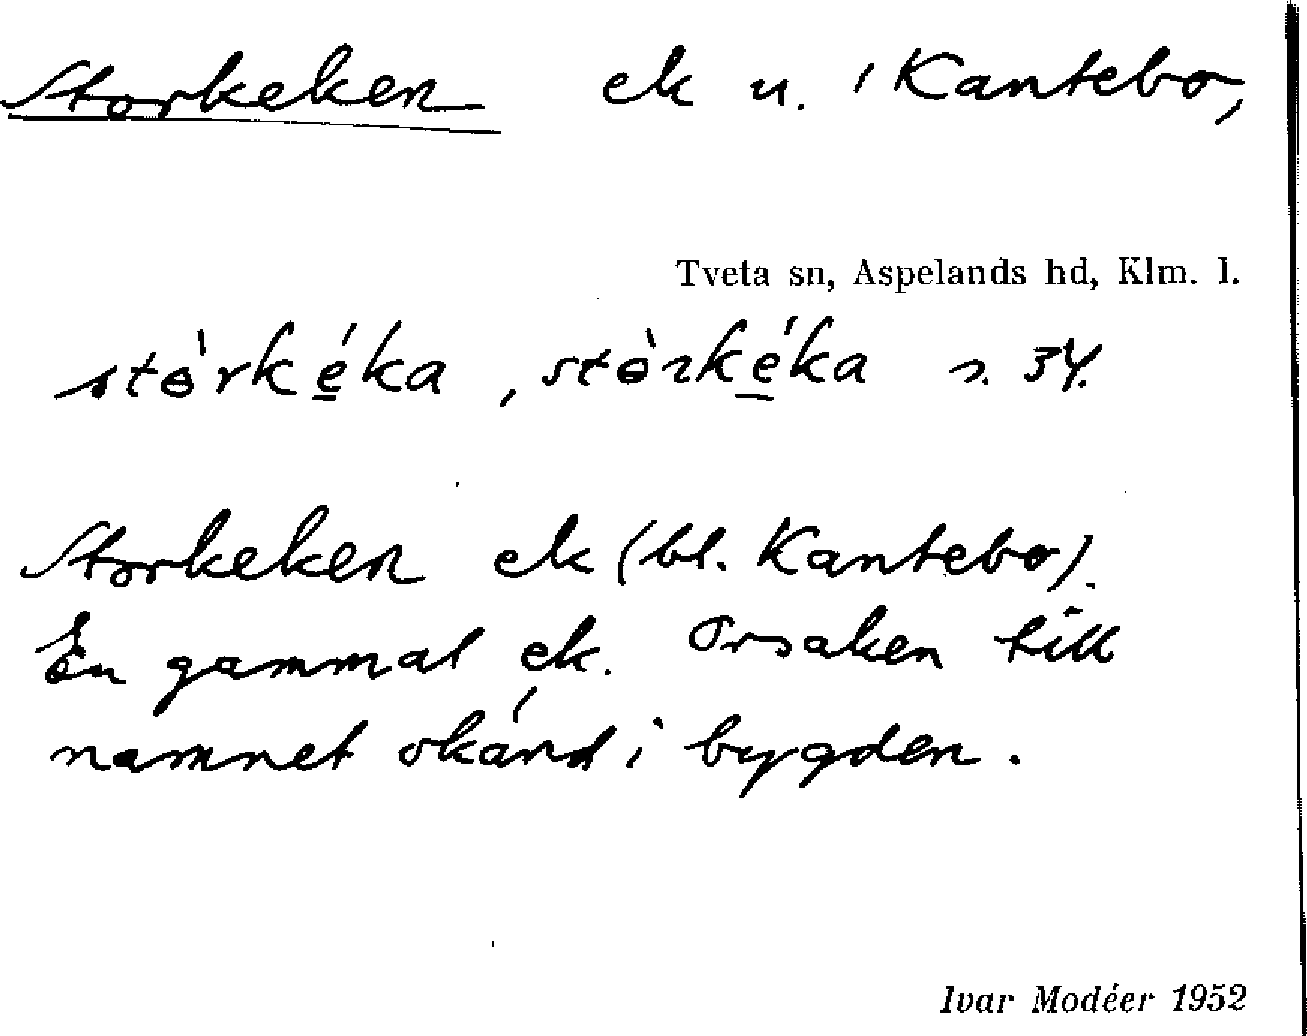 Storkeken ek u. / Kantebo,
Tveta sn, Aspelands hd, Klm. l.
stɵ̀rké̱ka, stɵ̀rké̱ka s. 34.
Storkeken ek (bl. Kantebo).
En gammal ek. Orsaken till
namnet okänd i bygden.
Ivar Modéer 1952